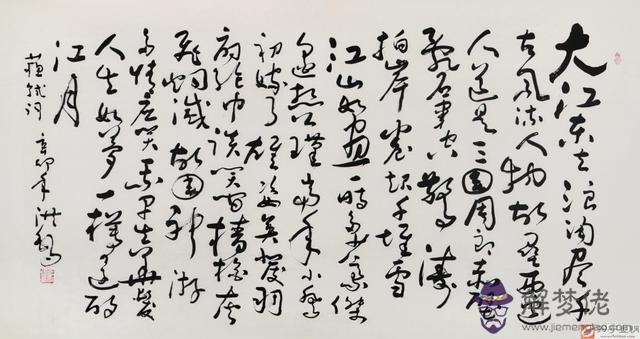 大江东去浪淘尽千
古风流人物故垒西边
人道是三国周郎赤壁
乱石穿空惊涛
拍岸卷起千堆雪
江山如画一时多少豪傑
遥想公瑾当年小乔
初嫁了雄姿英发羽
扇纶巾谈笑间樯橹灰
飞烟灭故国神游
多情应笑我早生华髪
人生如梦一樽还酹
江月
蘇軾词 辛卯年
解梦佬